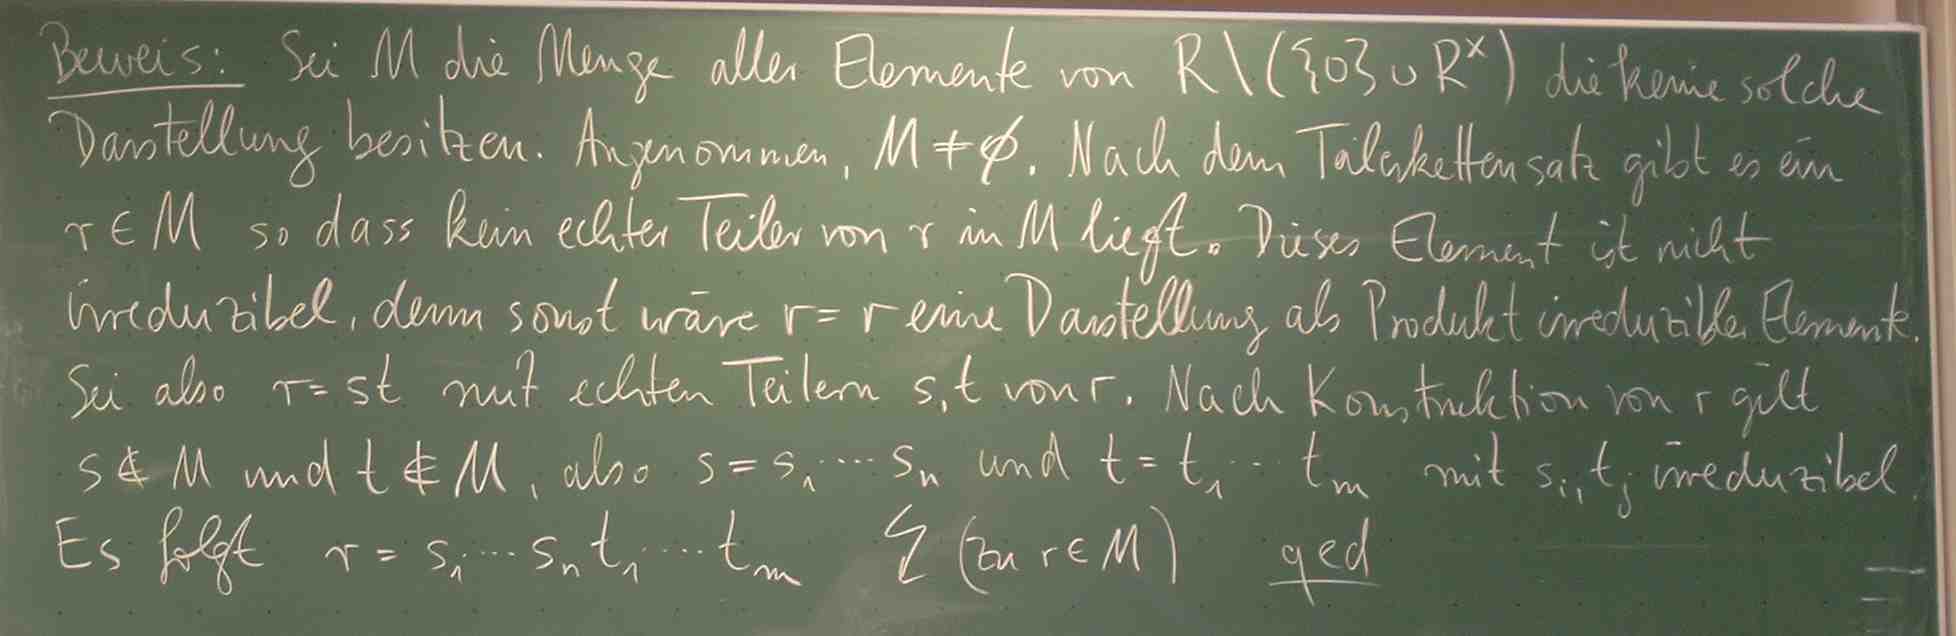 Beweis: Sei M die Menge aller Elemente von R\({0} ∪ R^×) die keine solche
Darstellung besitzen. Angenommen, M ≠ ∅. Nach dem Teilerkettensatz gibt es ein
r ∈ M so dass kein echter Teiler von r in M liegt. Dieses Element ist nicht
irreduzibel, denn sonst wäre r = r eine Darstellung als Produkt irreduzibler Elemente.
Sei also r = st mit echten Teilern s,t von r. Nach Konstruktion von r gilt
s ∉ M und t ∉ M, also s = s₁ ⋯ sₙ und t = t₁ ⋯ tₘ mit sᵢ, tⱼ irreduzibel.
Es folgt r = s₁ ⋯ sₙ t₁ ⋯ tₘ ↯ (zu r ∈ M) qed